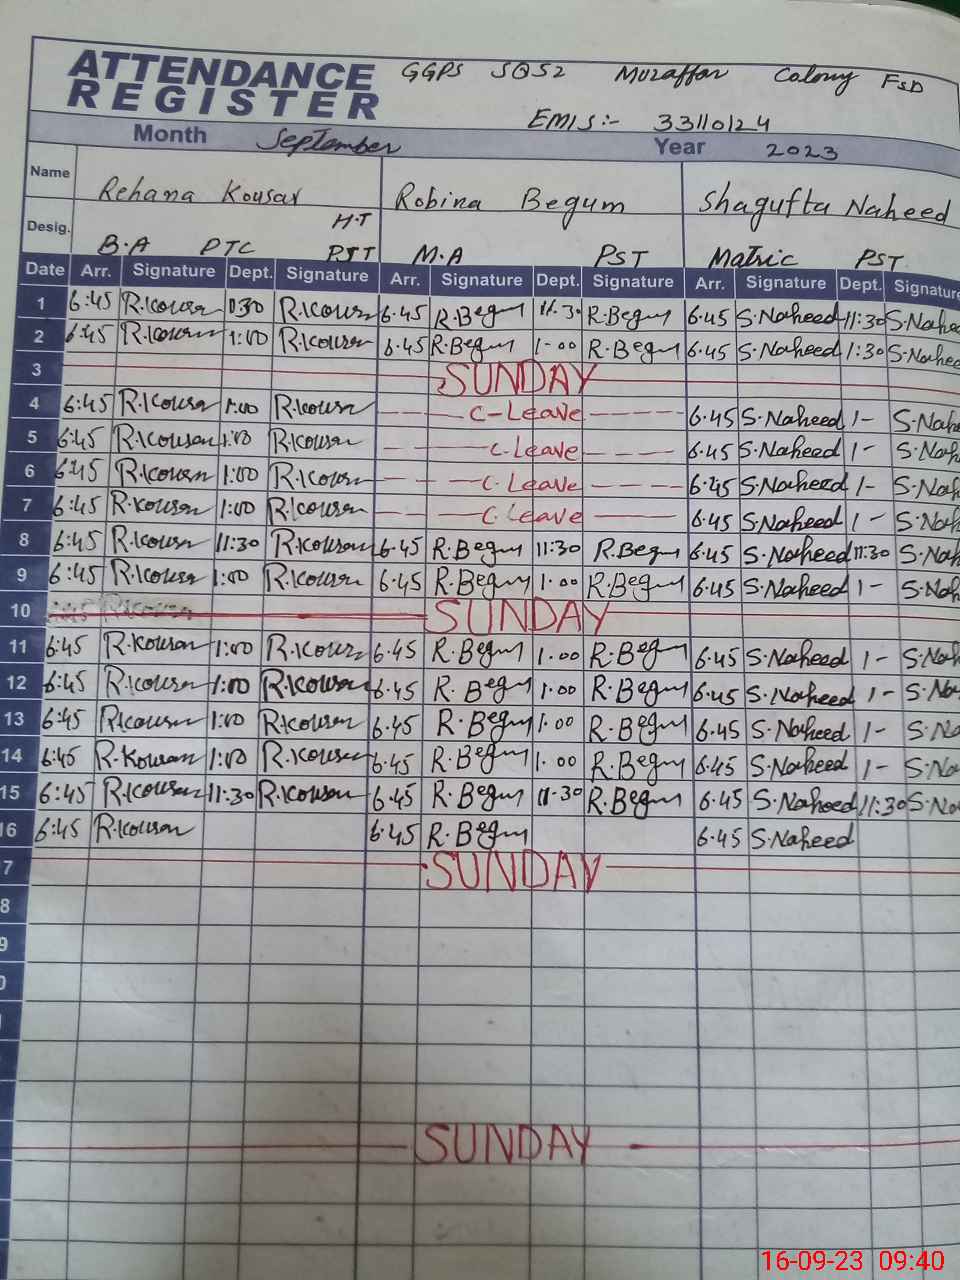 ATTENDANCE REGISTER GGPS SQ52 Muzaffar Colony FSD
EMIS:- 33110124
Month September Year 2023
Name Rehana Kousar Robina Begum Shagufta Naheed
Desig. B.A PTC H.T M.A PST Matric PST
Date Arr. Signature Dept. Signature Arr. Signature Dept. Signature Arr. Signature Dept. Signature
1 6:45 R.Kousar R.Kousar 6.45 R.Begum 11.30 R.Begum 6.45 S.Naheed 11:30 S.Nahe
2 6:45 R.Kousar 1:00 R.Kousar 6.45 R.Begum 1.00 R.Begum 6.45 S.Naheed 1:30 S.Nahee
3 SUNDAY
4 6:45 R.Kousar 1:00 R.Kousar C-Leave 6.45 S.Naheed 1- S.Nah
5 6:45 R.Kousar 1:00 R.Kousar C.Leave 6.45 S.Naheed 1- S.Nah
6 6:45 R.Kousar 1:00 R.Kousar C.Leave 6.45 S.Naheed 1- S.Nah
7 6:45 R.Kousar 1:00 R.Kousar C.Leave 6.45 S.Naheed 1- S.Nah
8 6:45 R.Kousar 11:30 R.Kousar 6.45 R.Begum 11:30 R.Begum 6.45 S.Naheed 11:30 S.Nah
9 6:45 R.Kousar 1:00 R.Kousar 6.45 R.Begum 1.00 R.Begum 6.45 S.Naheed 1- S.Nah
10 SUNDAY
11 6:45 R.Kousar 1:00 R.Kousar 6.45 R.Begum 1.00 R.Begum 6.45 S.Naheed 1- S.Nah
12 6:45 R.Kousar 1:00 R.Kousar 6.45 R.Begum 1.00 R.Begum 6.45 S.Naheed 1- S.Na
13 6:45 R.Kousar 1:00 R.Kousar 6.45 R.Begum 1.00 R.Begum 6.45 S.Naheed 1- S.Na
14 6:45 R.Kousar 1:00 R.Kousar 6.45 R.Begum 1.00 R.Begum 6.45 S.Naheed 1- S.Na
15 6:45 R.Kousar 11:30 R.Kousar 6.45 R.Begum 11.30 R.Begum 6.45 S.Naheed 11:30 S.Na
16 6:45 R.Kousar 6.45 R.Begum 6.45 S.Naheed
7 SUNDAY
8
9
0
SUNDAY
16-09-23 09:40